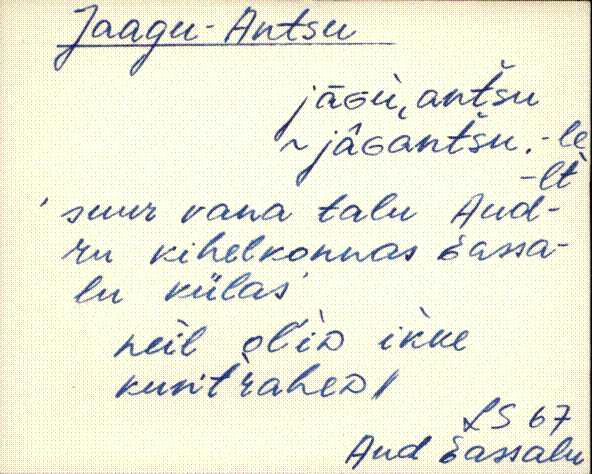 Jaagu-Antsu
jāGù, antšu
~ jâGantšu, -le
-lt
' suur vana talu Aud-
ru kihelkonnas Eassa-
lu külas'
neil ol'iD ikke
kunt'raheD /
LS 67
Aud Eassalu